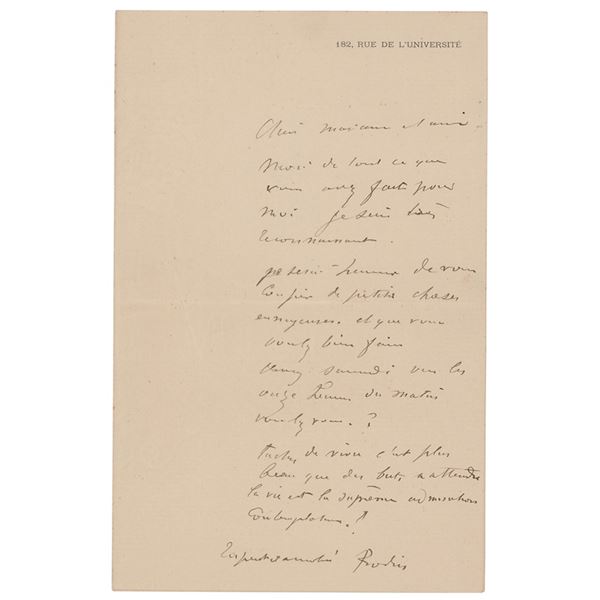 182, RUE DE L'UNIVERSITÉ
Chère madame et amie
Merci de tout ce que
vous avez fait pour
moi je suis très
reconnaissant.
je suis heureux de vous
confier de petites choses
ennuyeuses. et que vous
voulez bien faire
Venez samedi vers les
onze heures du matin
voulez vous. ?
Tachez de vivre c'est plus
beau que des buts a attendre
la vie est la suprême admiration
Contemplation.!
Rodin